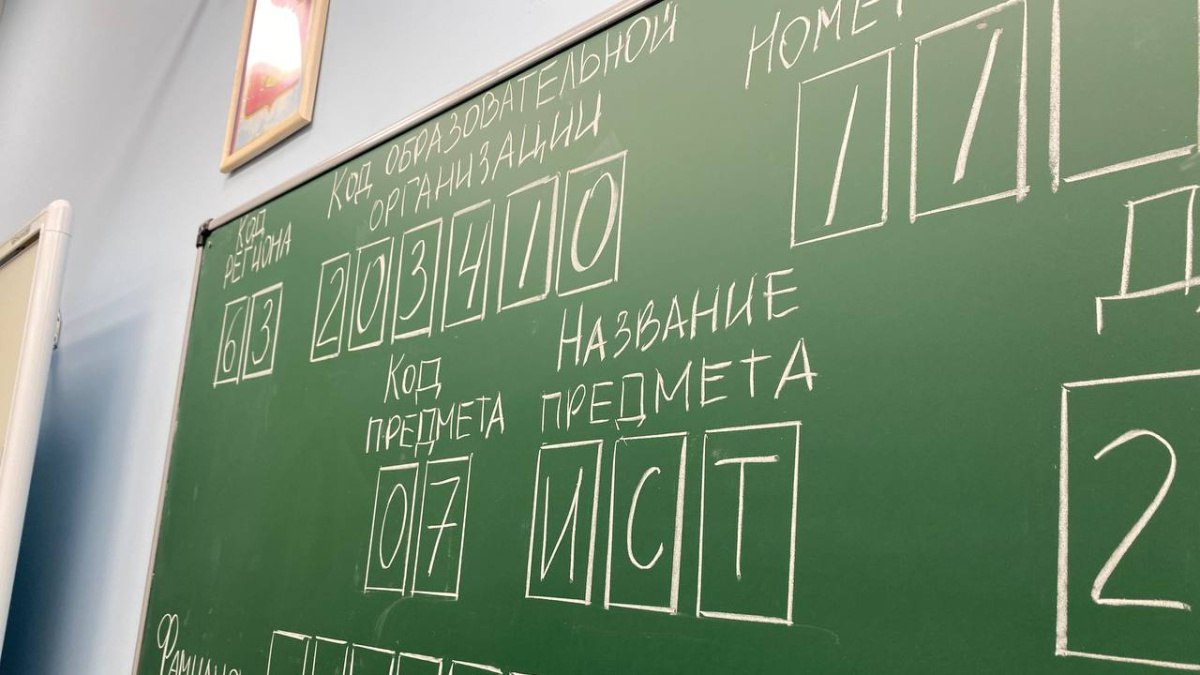 Код региона
63
Код образовательной
организации
203410
Номе
11
Код
предмета
07
Название
предмета
ИСТ
Д
2
Фамилия